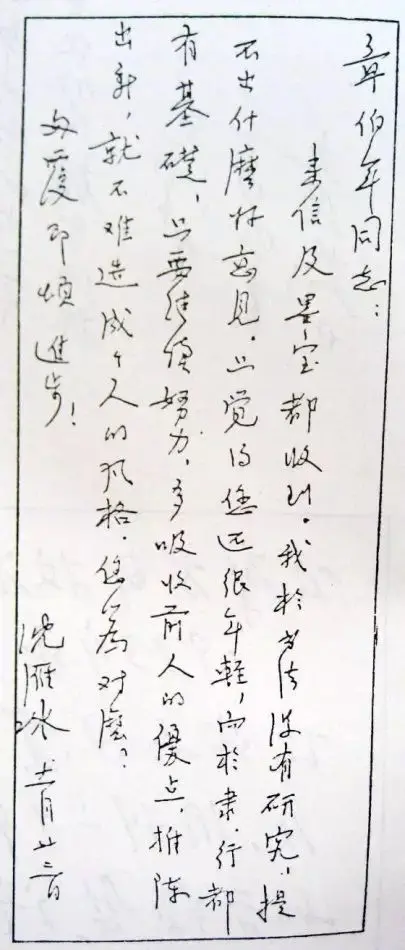 章伯年同志：
来信及墨宝都收到。我於书法没有研究，提
不出什麽好意见。只觉得您还很年轻，而於隶、行都
有基礎，只要继续努力，多吸收前人的優点，推陈
出新，就不难造成个人的风格。您以为对麽？
匆覆即頌進步！
沈雁冰 十一月廿三日